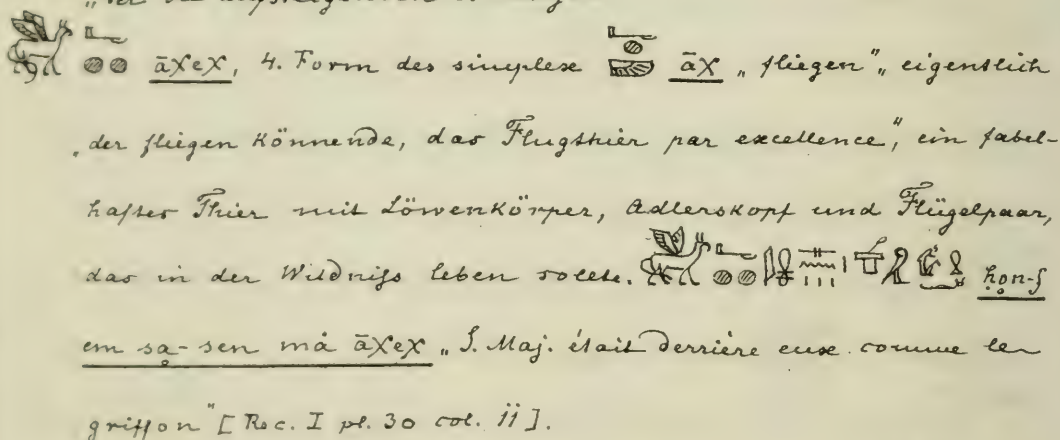 āχeχ, 4. Form des simplex āχ „fliegen“, eigentlich
„der fliegen könnende, das Flugthier par excellence“, ein fabel-
hafter Thier mit Löwenkörper, Adlerskopf und Flügelpaar,
das in der Wildniss leben sollte. ḥon-f
em sa-sen må āχeχ „S. Maj. était derrière eux comme le
griffon“ [Rec. I pl. 30 col. 11].